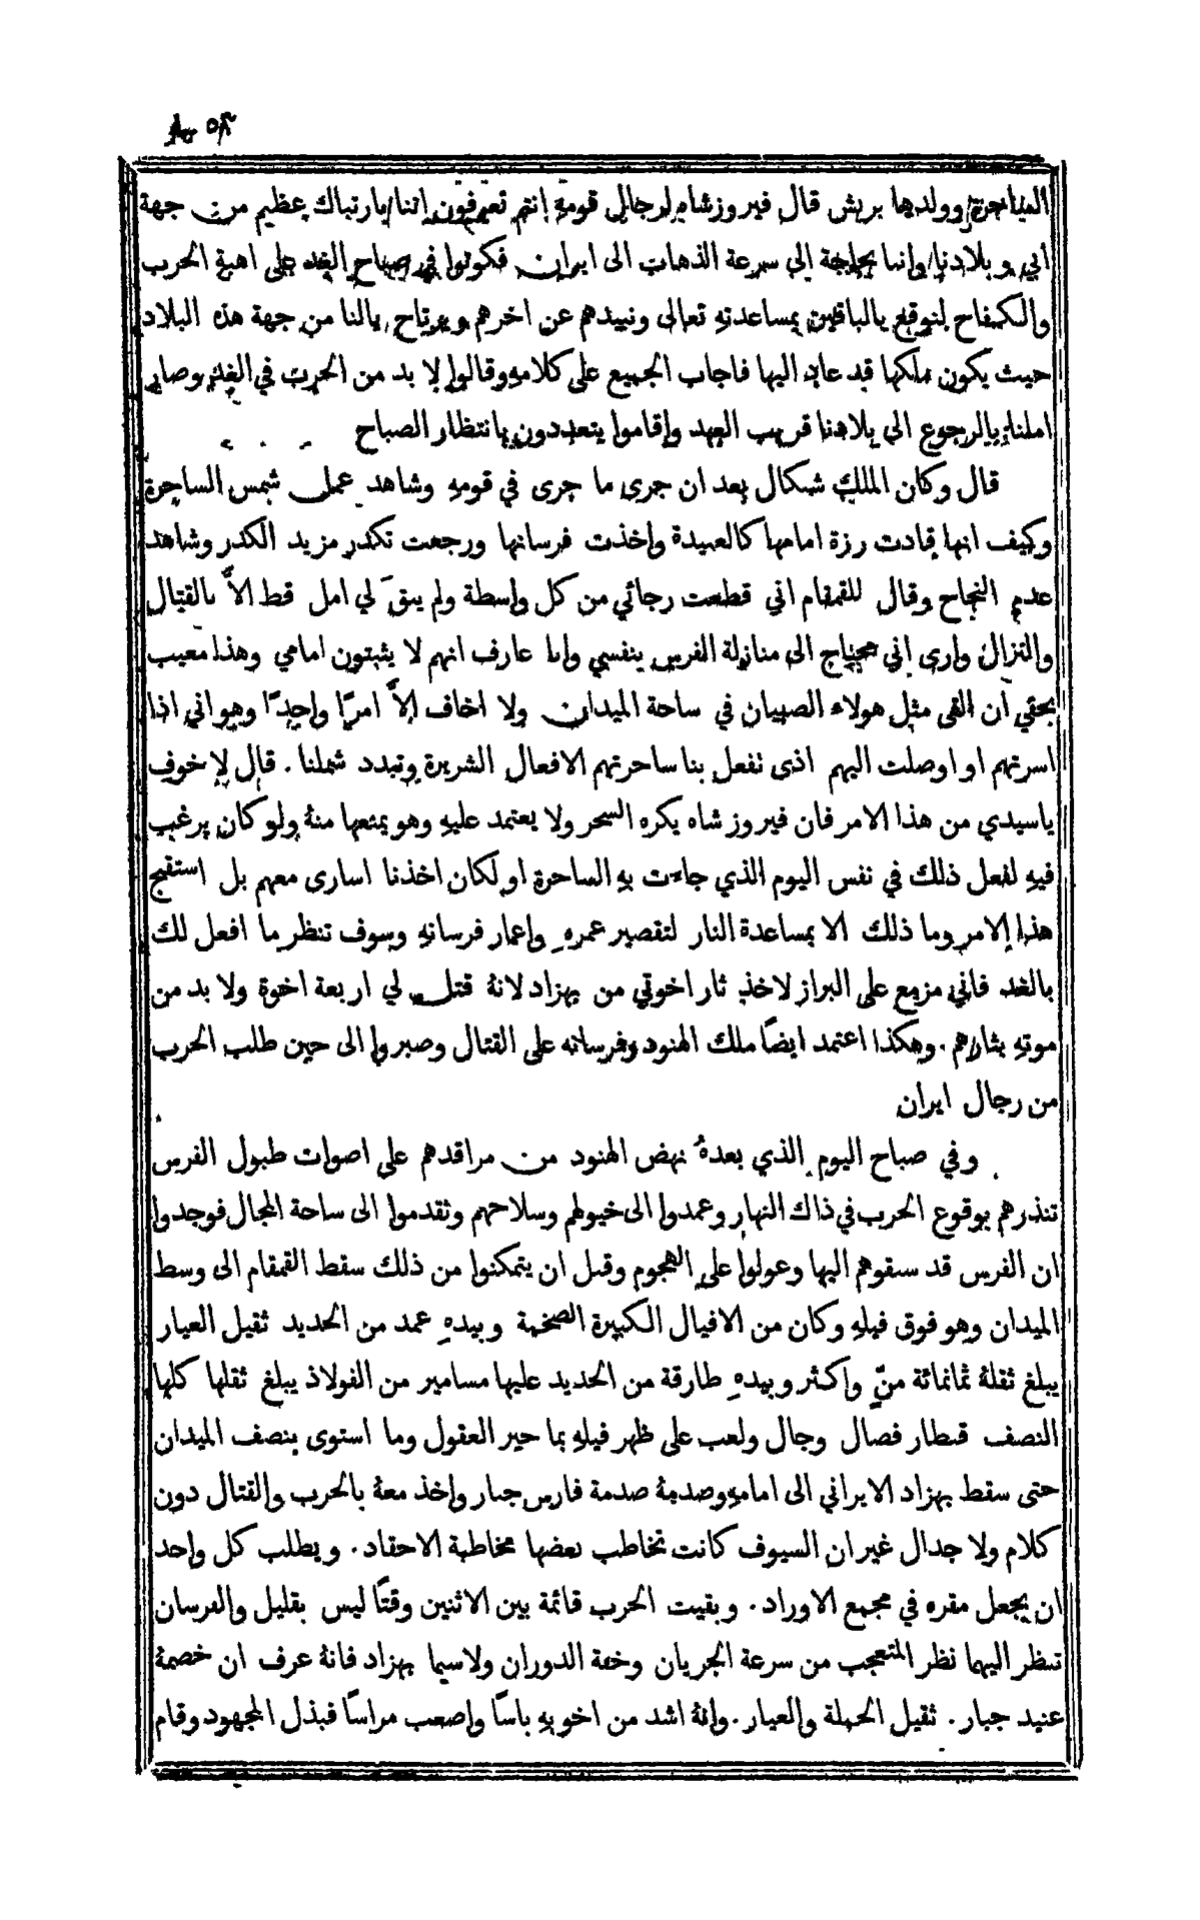 الساحرة وولدها بريش قال فيروزشاه لرجال قومهِ انتم تعرفون اننا بارتباك عظيم من جهة
ابي وبلادنا واننا بحاجة الى سرعة الذهاب الى ايران فكونوا في صباح الغد على اهبة الحرب
والكفاح لنوقع بالباقين بمساعدتهِ تعالى ونبيدهم عن اخرهم ويرتاح بالنا من جهة هذه البلاد
حيث يكون ملكها قد عاد اليها فاجاب الجميع على كلامهِ وقالوا لا بد من الحرب في الغد وصار
املنا بالرجوع الى بلادنا قريب العهد واقاموا يتعددون بانتظار الصباح
قال وكان الملك شنكال بعد ان جرى ما جرى في قومهِ وشاهد عمل شمس الساحرة
وكيف انها قادت رزة امامها كالعبيدة واخذت فرسانها ورجعت تكدر مزيد الكدر وشاهد
عدم النجاح وقال للقمقام اني قطعت رجائي من كل واسطة ولم يبقَ لي امل قط الاَّ بالقتال
والنزال وارى اني محتاج الى منازلة الفرس بنفسي وانا عارف انهم لا يثبتون امامي وهذا معيب
بحقي ان القى مثل هولاء الصبيان في ساحة الميدان ولا اخاف الاَّ امرًا واحدًا وهو اني اذا
اسرتهم او اوصلت اليهم اذى تفعل بنا ساحرتهم الافعال الشريرة وتبدد شملنا. قال لا خوف
ياسيدي من هذا الامر فان فيروز شاه يكره السحر ولا يعتمد عليهِ وهو يمنعها منهُ ولو كان يرغب
فيهِ لفعل ذلك في نفس اليوم الذي جاءت بهِ الساحرة او لكان اخذنا اسارى معهم بل استقبح
هذا الامر وما ذلك الا بمساعدة النار لتقصير عمرهِ واعمار فرسانهِ وسوف تنظر ما افعل لك
بالغد فاني مزمع على البراز لاخذ ثار اخوتي من بهزاد لانهُ قتل لي اربعة اخوة ولا بد من
موتهِ بثارهم. وهكذا اعتمد ايضًا ملك الهنود وفرسانه على القتال وصبروا الى حين طلب الحرب
من رجال ايران
وفي صباح اليوم الذي بعدهُ نهض الهنود من مراقدهم على اصوات طبول الفرس
تنذرهم بوقوع الحرب في ذاك النهار وعمدوا الى خيولهم وسلاحهم وتقدموا الى ساحة المجال فوجدوا
ان الفرس قد سبقوهم اليها وعولوا على الهجوم وقبل ان يتمكنوا من ذلك سقط القمقام الى وسط
الميدان وهو فوق فيلهِ وكان من الافيال الكبيرة الضخمة وبيدهِ عمد من الحديد ثقيل العيار
يبلغ ثقلهُ ثمانمائة منٍّ واكثر وبيدهِ طارقة من الحديد عليها مسامير من الفولاذ يبلغ ثقلها كلها
النصف قنطار فصال وجال ولعب على ظهر فيلهِ بما حير العقول وما استوى بنصف الميدان
حتى سقط بهزاد الايراني الى امامهِ وصدمهُ صدمة فارس جبار واخذ معهُ بالحرب والقتال دون
كلام ولا جدال غير ان السيوف كانت تخاطب بعضها مخاطبة الاحقاد. ويطلب كل واحد
ان يجعل مقره في مجمع الاوراد. وبقيت الحرب قائمة بين الاثنين وقتًا ليس بقليل والفرسان
تنظر اليهما نظر المتعجب من سرعة الجريان وخفة الدوران ولاسيما بهزاد فانهُ عرف ان خصمهُ
عنيد جبار. ثقيل الحملة والعيار. وانهُ اشد من اخوتهِ باسًا واصعب مراسًا فبذل المجهود وقام